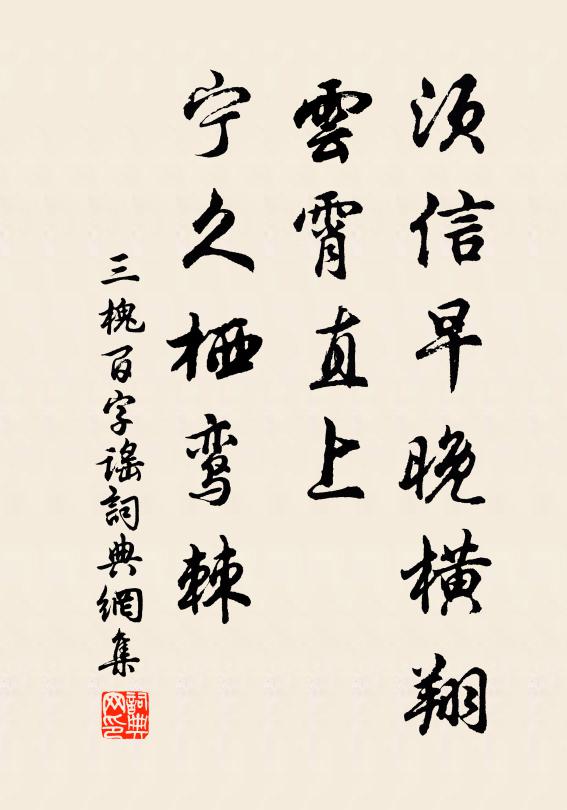 须信早晚横翔
雲霄直上
宁久栖鸾棘
三槐百字谣詞典網集
詞典网印